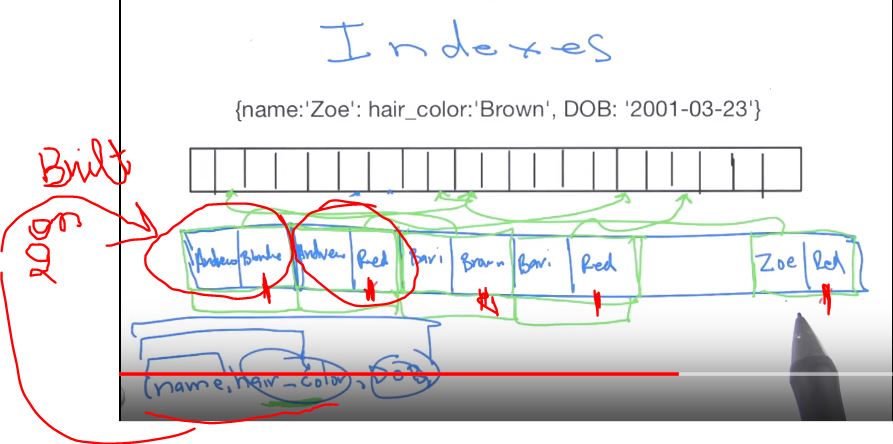 Indexes
{name:'Zoe': hair_color:'Brown', DOB: '2001-03-23'}
Built
Andrew Blonde Andrew Red Bari Brown Bari Red Zoe Red
(name, hair_color, DOB)